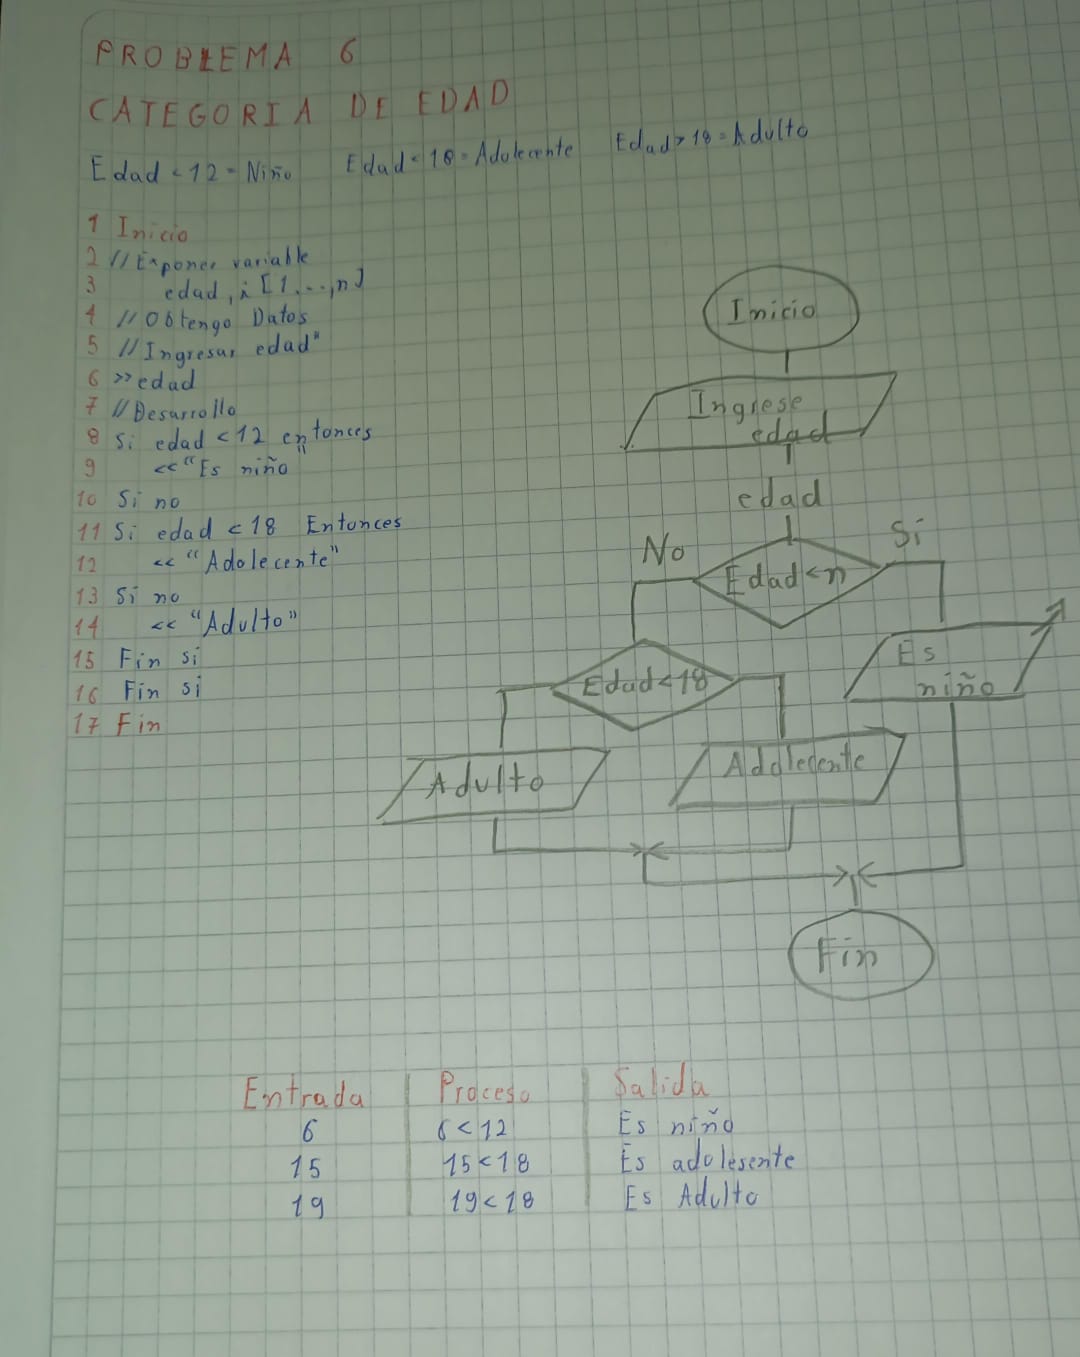 PROBLEMA 6
CATEGORIA DE EDAD
Edad < 12 = Niño Edad < 18 = Adolecente Edad > 18 = Adulto
1 Inicio
2 // Exponer variable
3 edad, i [1...,n]
4 // Obtengo Datos
5 // Ingresar edad"
6 >> edad
7 // Desarrollo
8 Si edad < 12 entonces
9 << "Es niño"
10 Si no
11 Si edad < 18 Entonces
12 << "Adolecente"
13 Si no
14 << "Adulto"
15 Fin si
16 Fin si
17 Fin
Inicio
Ingrese
edad
edad
No
Si
Edad < n
Es
niño
Edad < 18
Adulto
Adolecente
Fin
Entrada Proceso Salida
6 6 < 12 Es niño
15 15 < 18 Es adolesente
19 19 < 18 Es Adulto